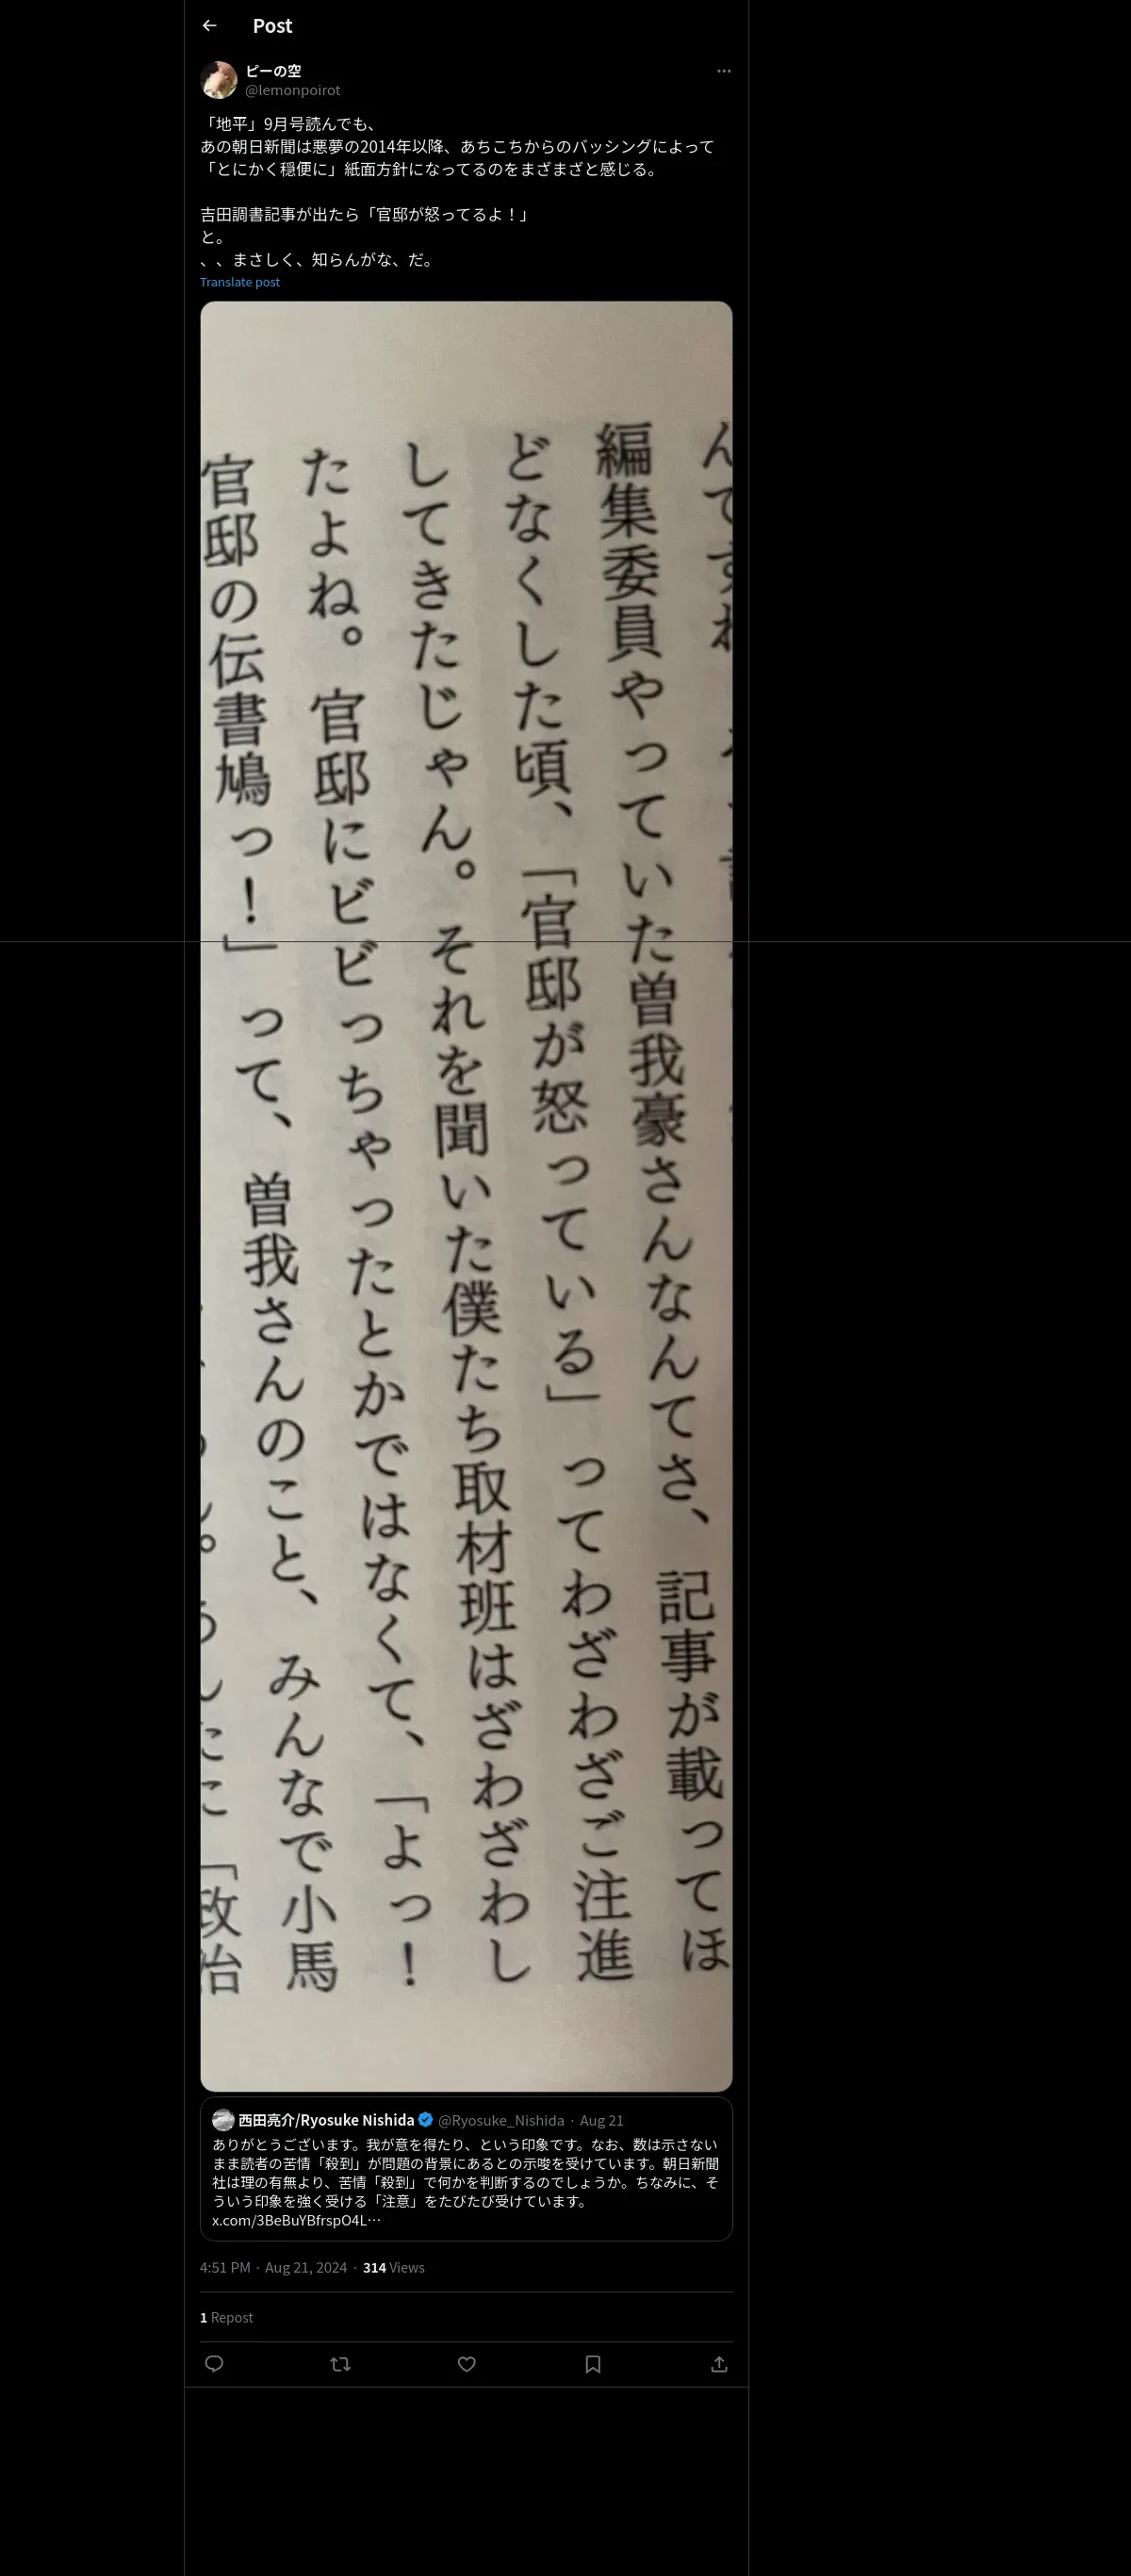 Post
ピーの空
@lemonpoirot
「地平」9月号読んでも、
あの朝日新聞は悪夢の2014年以降、あちこちからのバッシングによって
「とにかく穏便に」紙面方針になってるのをまざまざと感じる。
吉田調書記事が出たら「官邸が怒ってるよ！」
と。
、、まさしく、知らんがな、だ。
Translate post
編集委員やっていた曽我豪さんなんてさ、記事が載ってほ
どなくした頃、「官邸が怒っている」ってわざわざご注進
してきたじゃん。それを聞いた僕たち取材班はざわざわし
たよね。官邸にビビっちゃったとかではなくて、「よっ！
官邸の伝書鳩っ！」って、曽我さんのこと、みんなで小馬
「政治
西田亮介/Ryosuke Nishida @Ryosuke_Nishida · Aug 21
ありがとうございます。我が意を得たり、という印象です。なお、数は示さない
まま読者の苦情「殺到」が問題の背景にあるとの示唆を受けています。朝日新聞
社は理の有無より、苦情「殺到」で何かを判断するのでしょうか。ちなみに、そ
ういう印象を強く受ける「注意」をたびたび受けています。
x.com/3BeBuYBfrspO4L…
4:51 PM · Aug 21, 2024 · 314 Views
1 Repost